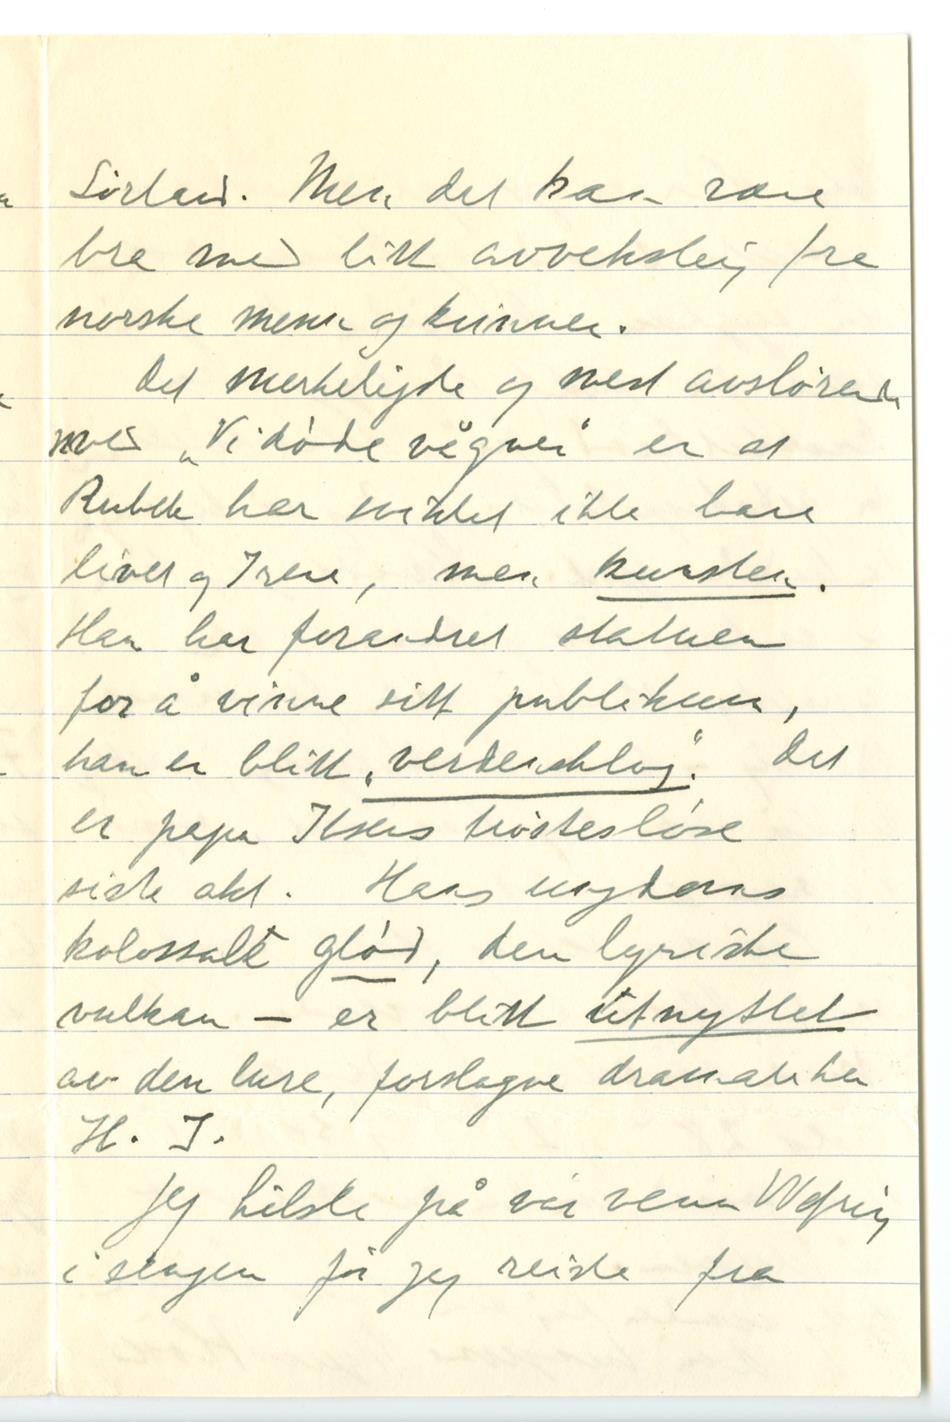 Sørland. Men det kan være
bra med litt avveksling fra
norske menn og kvinner.
Det merkeligste og mest avslørende
med „Vi døde vågner" er at
Rubek har sviktet ikke bare
livet og Irene, men kunsten.
Han har forandret statuen
for å vinne sitt publikum,
han er blitt „verdensklog". Det
er papa Ibsens trøstesløse
siste akt. Hans ungdoms
kolossalt glød, den lyriske
vulkan — er blitt utnyttet
av den lure, forslagne dramatiker
H. I.
Jeg hilste på vår venn
i sengen før jeg reiste fra